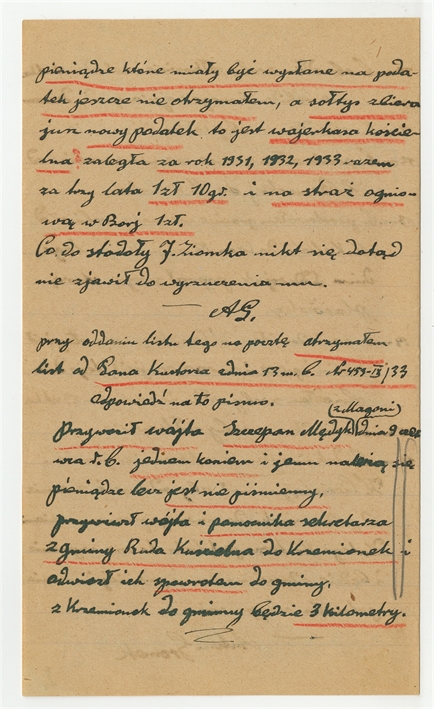 pieniądze które miały być wysłane na poda-
tek jeszcze nie otrzymałem, a sołtys zbiera
już nowy podatek to jest wajerkasa koście-
lna zaległa za rok 1931, 1932, 1933 razem
za trzy lata 1 zł 10 gr. i na straż ognio-
wą w Borj 1 zł.
Co do stodoły J. Ziomka nikt się dotąd
nie zjawił do wyrzucenia mu.
— AG.
przy oddaniu listu tego na pocztę otrzymałem
list od Pana Kustosa z dnia 13 m. b. Nr 459-IX/33
odpowiedź na to pismo.
(z Magoni)
Przywoził wójta Szczepan Mędyk dnia 9
w.b. jednem koniem i jemu należą się
pieniądze lecz jest nie piśmienny,
przywiózł wójta i pomocnika sekretarza
z gminy Ruda Kościelna do Krzemionek i
odwiózł ich spowrotem do gminy,
z Krzemionek do gminny będzie 3 kilometry.